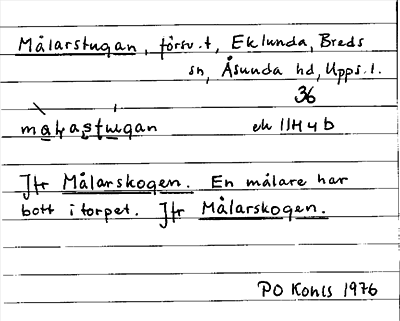 Målarstugan, försv. t, Eklunda, Breds
sn, Åsunda hd, Upps. l.
36
målastugan ek 11H4b
Jfr Målarskogen. En målare har
bott i torpet. Jfr Målarskogen.
PO Konls 1976